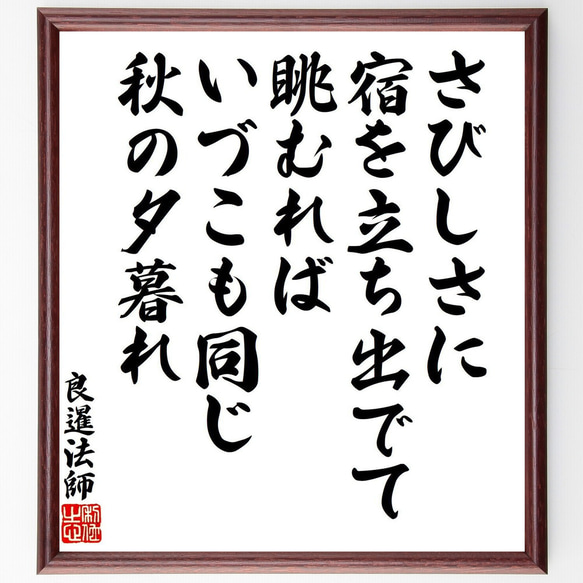 さびしさに
宿を立ち出でて
眺むれば
いづこも同じ
秋の夕暮れ
良暹法師